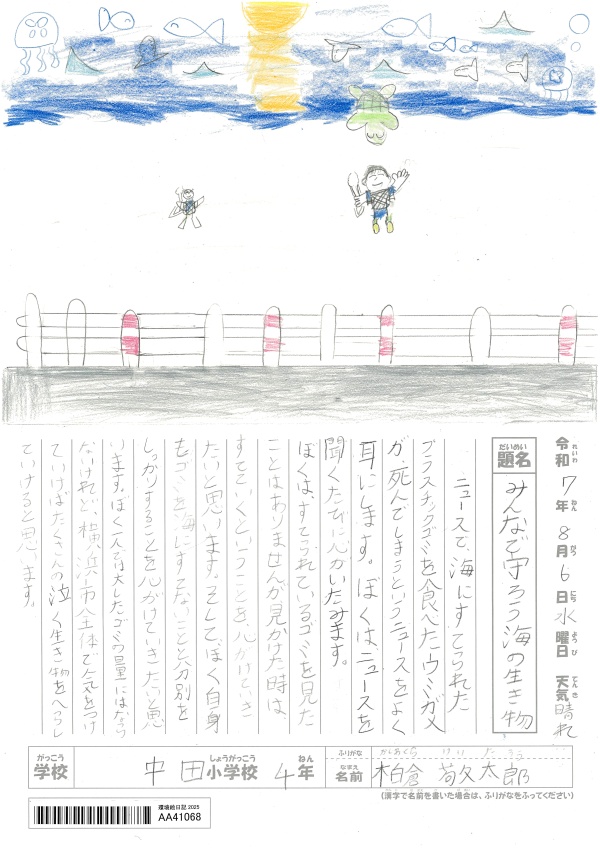 令和7年8月6日水曜日 天気 晴れ
れいわ ねん がつ にち ようび てんき
題名 みんなで守ろう海の生き物
だいめい
ニュースで海にすてられた
プラスチックゴミを食べたウミガメ
が、死んでしまうというニュースをよく
耳にします。ぼくはニュースを
聞くたびに心がいたみます。
ぼくは、すてられているゴミを見た
ことはありませんが見かけた時は、
すてていくということを、心がけていき
たいと思います。そして、ぼく自身
もゴミを海にすてないことと分別を
しっかりすることを心がけていきたいと思
います。ぼく一人では大したゴミの量にはなら
ないけれど、横浜市全体で気をつけ
ていけばたくさんの泣く生き物をへらし
ていけると思います。
がっこう しょうがっこう ねん
学校 中田小学校 4年
ふりがな かしわくら けいたろう
なまえ
名前 柏倉 敬太郎
(漢字で名前を書いた場合は、ふりがなをふってください)
環境絵日記 2025
AA41068